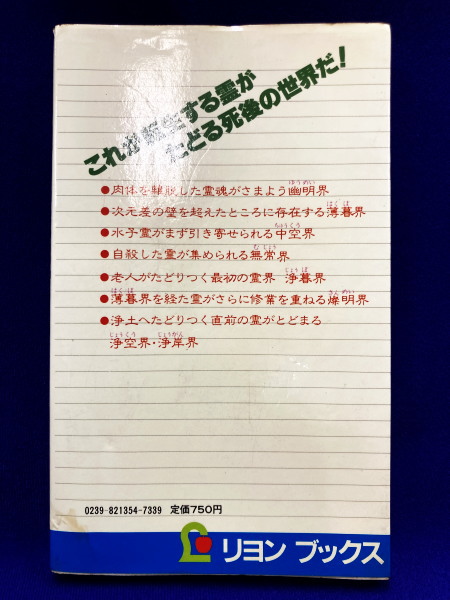 これが転生する霊が
たどる死後の世界だ!
ゆうめい
●肉体を離脱した霊魂がさまよう幽明界
はくぼ
●次元差の壁を超えたところに存在する薄暮界
ちゅうくう
●水子霊がまず引き寄せられる中空界
むじょう
●自殺した霊が集められる無常界
じょうぼ
●老人がたどりつく最初の霊界 浄暮界
はくぼ さんめい
●薄暮界を経た霊がさらに修業を重ねる 明界
●浄土へたどりつく直前の霊がとどまる
じょうくう じょうがん
浄空界・浄岸界
0239-821354-7339 定価750円
リヨン ブックス